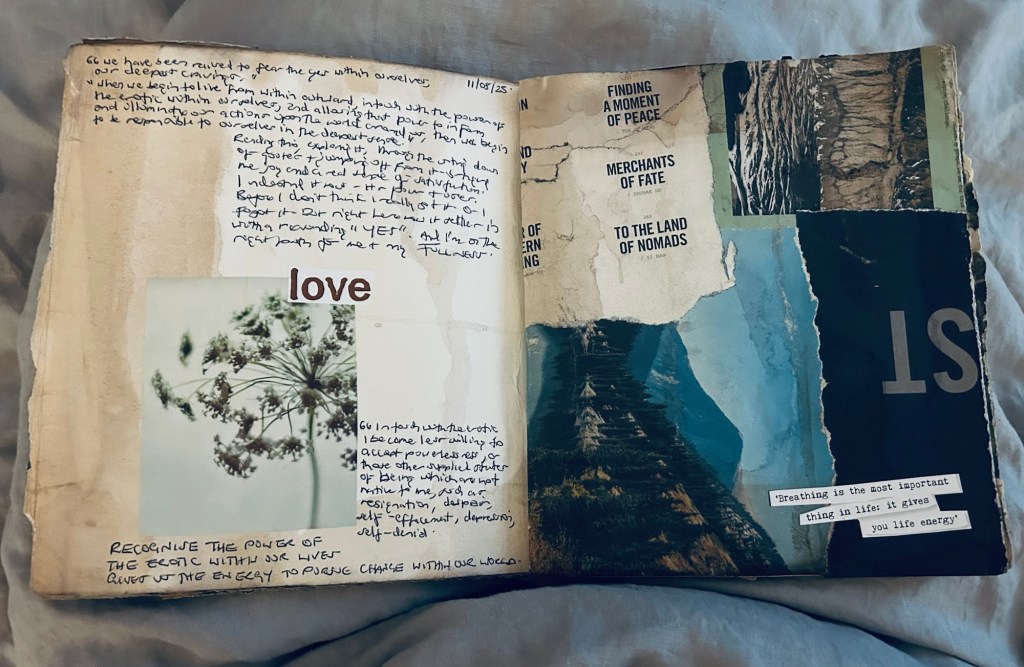 “ we have been raised to fear the yes within ourselves,
our deepest cravings. ”
11/08/25.
“ when we begin to live from within outward, in touch with the power of
the erotic within ourselves, and allowing that power to inform
and illuminate our actions upon the world around us, then we begin
to be responsible to ourselves in the deepest sense. ”
Reading this, exploring it, through the writing down
of quotes + jumping off from it is giving
me joy and a real sense of satisfaction.
I understand it now - its power + over.
Before I don't think I really got it or I
forgot it. But right here now it settles in
with a resounding “YES”. And I'm on the
right path for me + my FULLNESS.
love
“ In touch with the erotic
I become less willing to
accept powerlessness, or
those other supplied states
of being which are not
native to me, such as
resignation, despair,
self-effacement, depression,
self-denial.
RECOGNISE THE POWER OF
THE EROTIC WITHIN OUR LIVES
GIVES US THE ENERGY TO PURSUE CHANGE WITHIN OUR WORLD.
FINDING
A MOMENT
OF PEACE
MERCHANTS
OF FATE
TO THE LAND
OF NOMADS
N
ND
Y
R OF
ERN
NG
ST
'Breathing is the most important
thing in life: it gives
you life energy'